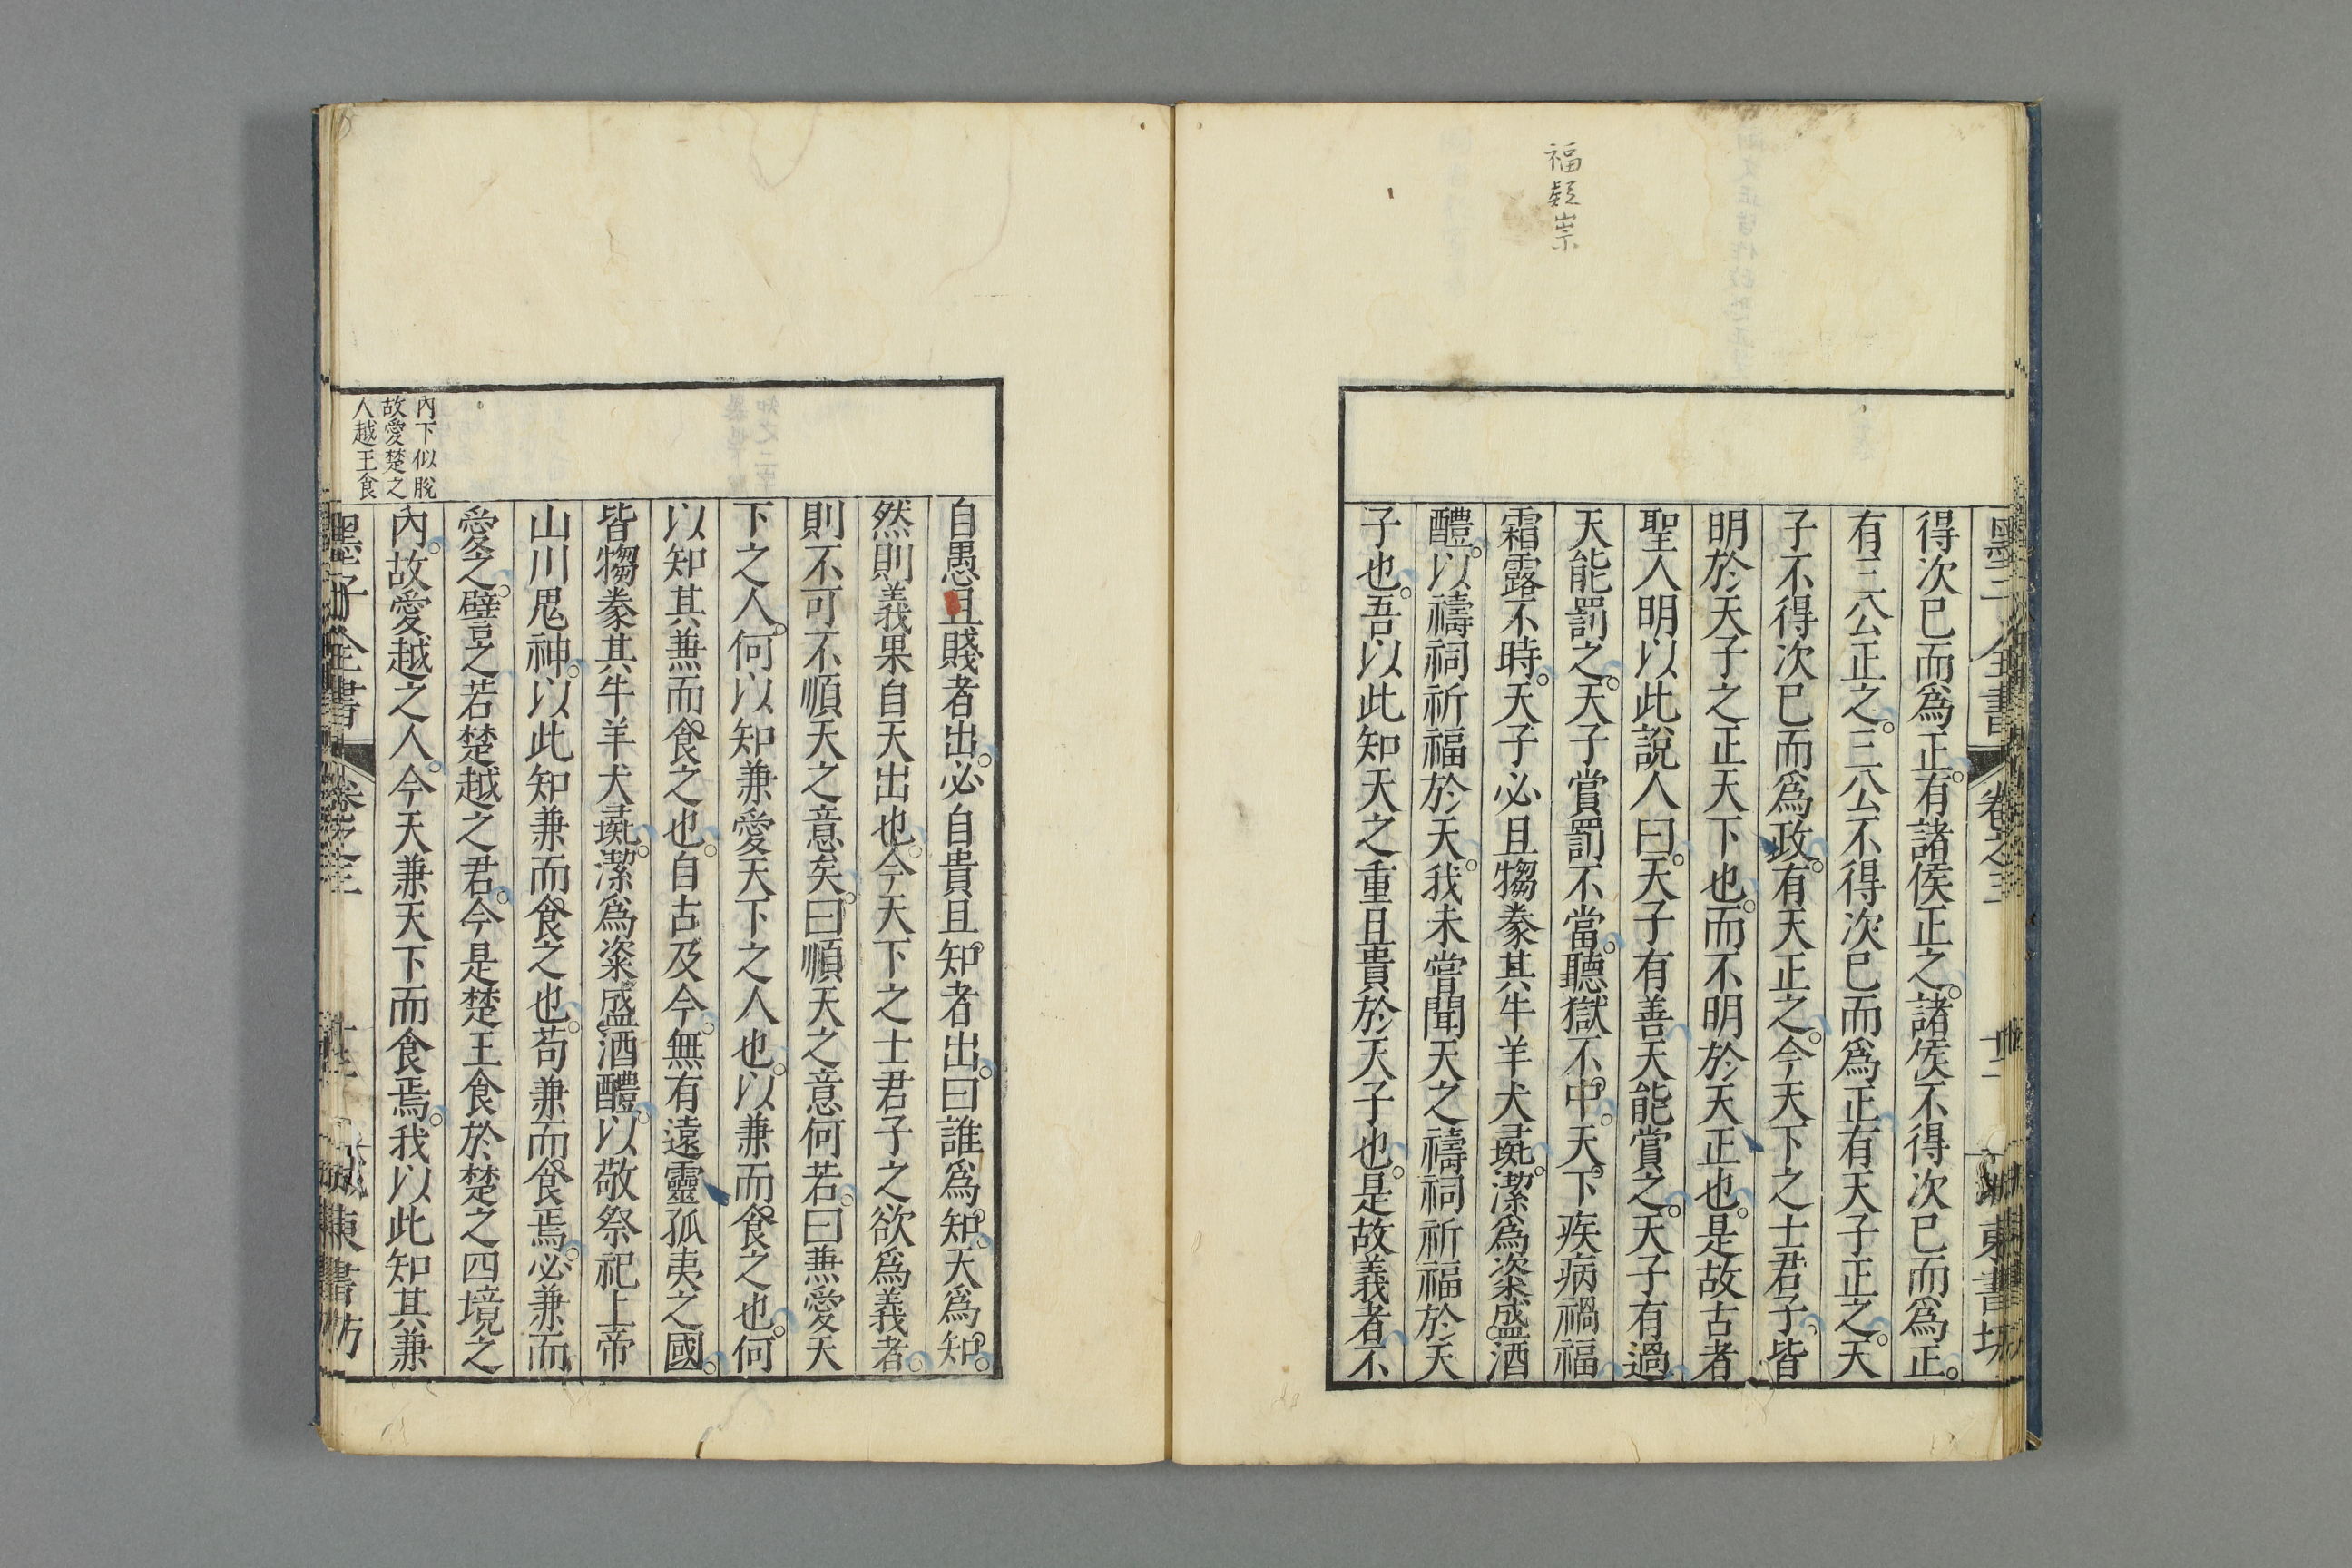 福疑祟
墨子全書 卷之三 十二 城東書坊
得次已而爲正。有諸侯正之。諸侯不得次已而爲正。
有三公正之。三公不得次已而爲正有天子正之。天
子不得次已而爲政。有天正之。今天下之士君子。皆
明於天子之正天下也。而不明於天正也。是故古者
聖人明以此說人曰。天子有善天能賞之。天子有過
天能罰之。天子賞罰不當。聽獄不中。天下疾病禍福
霜露不時。天子必且犓豢其牛羊犬彘。潔爲粢盛酒
醴。以禱祠祈福於天。我未嘗聞天之禱祠祈福於天
子也。吾以此知天之重且貴於天子也。是故義者不
自愚且賤者出。必自貴且知者出。曰誰爲知。天爲知。
然則義果自天出也。今天下之士君子之欲爲義者。
則不可不順天之意矣。曰順天之意何若。曰兼愛天
下之人。何以知兼愛天下之人也。以兼而食之也。何
以知其兼而食之也。自古及今。無有遠靈孤夷之國。
皆犓豢其牛羊犬彘。潔爲粢盛酒醴。以敬祭祀上帝
山川鬼神。以此知兼而食之也。苟兼而食焉。必兼而
愛之。譬之若楚越之君。今是楚王食於楚之四境之
內。故愛越之人。今天兼天下而食焉。我以此知其兼
內下似脫
故愛楚之
人越王食
墨子全書 卷之三 城東書坊